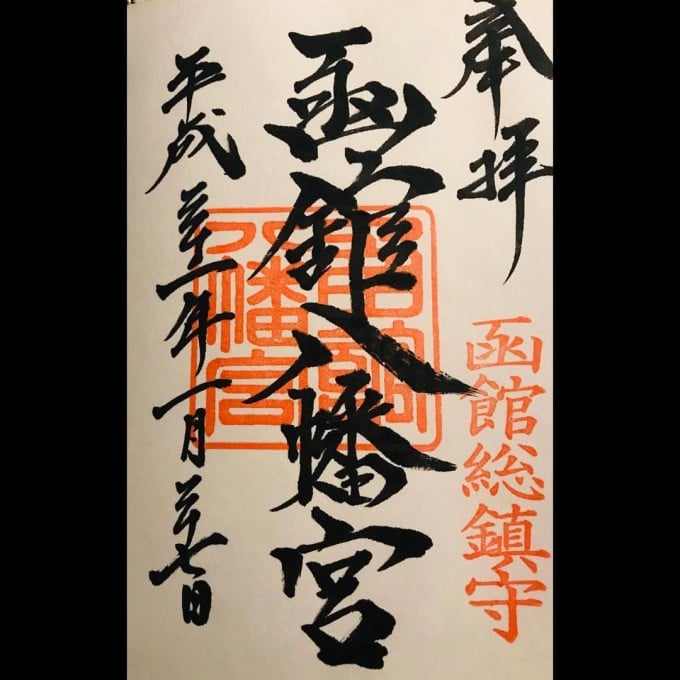 奉拝
函館総鎮守
函館八幡宮
函館
八幡宮
平成三十一年一月二十七日